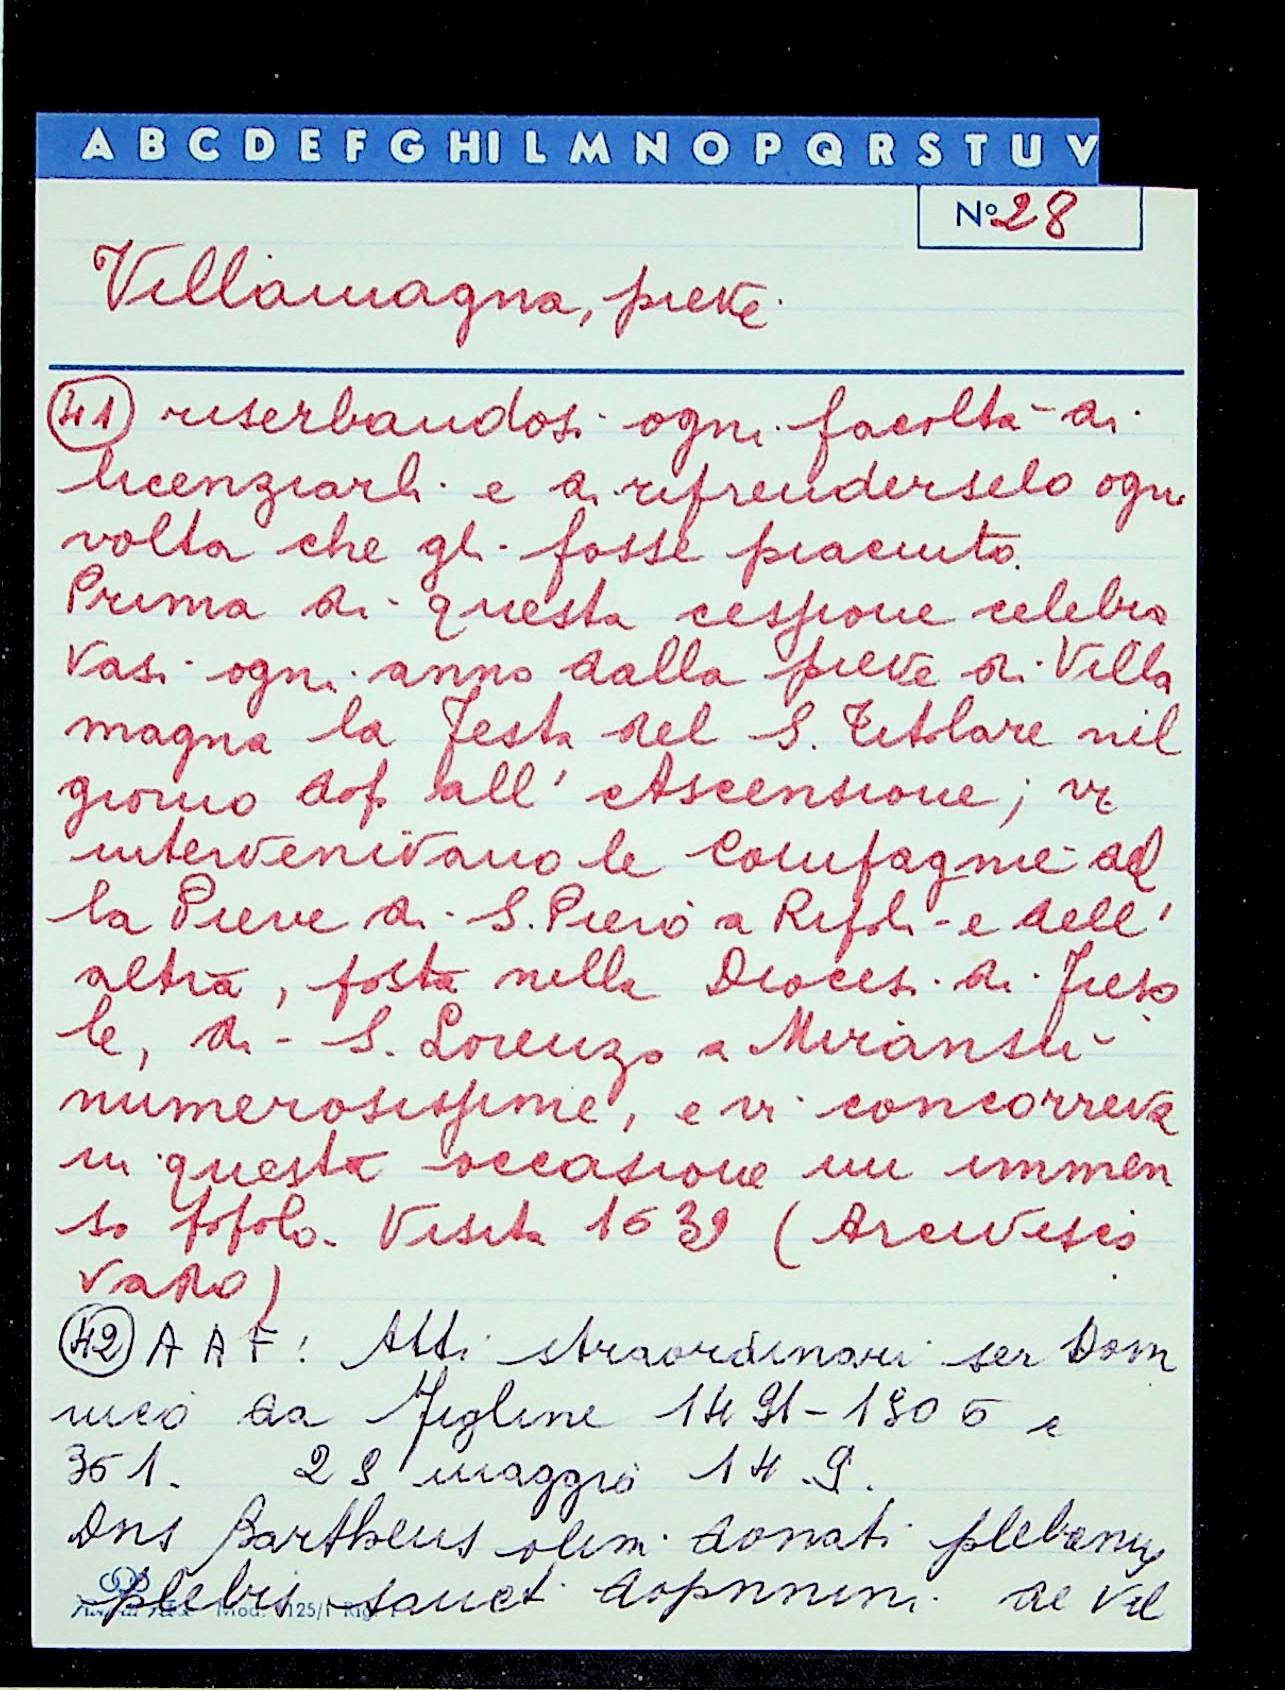 A B C D E F G H I L M N O P Q R S T U V
No 28
Villamagna, pieve
41 riserbandosi ogni facoltà di
licenziarli e di riprenderselo ogni
volta che gli fosse piaciuto.
Prima di questa cessione celebra
vasi ogni anno dalla pieve di Villa
magna la festa del S. Titolare nel
giorno dop. all' Ascensione; vi
intervenivano le Compagnie del
la Pieve di S. Piero a Ripoli e dell'
altra, posta nella Diocesi di Fieso
le, di S. Lorenzo a Miransù
numerosissime, e vi concorreva
in questa occasione un immen
so popolo. Visita 1639 (Arcivesco
vado)
42 A A F: Atti straordinari ser Dom
nico da Figline 1491-1506 c
361. 29 maggio 149.
Dns Bartheus olim donati plebanus
plebis sancti dopnnini de Vil
Mod. 125/1 Rig